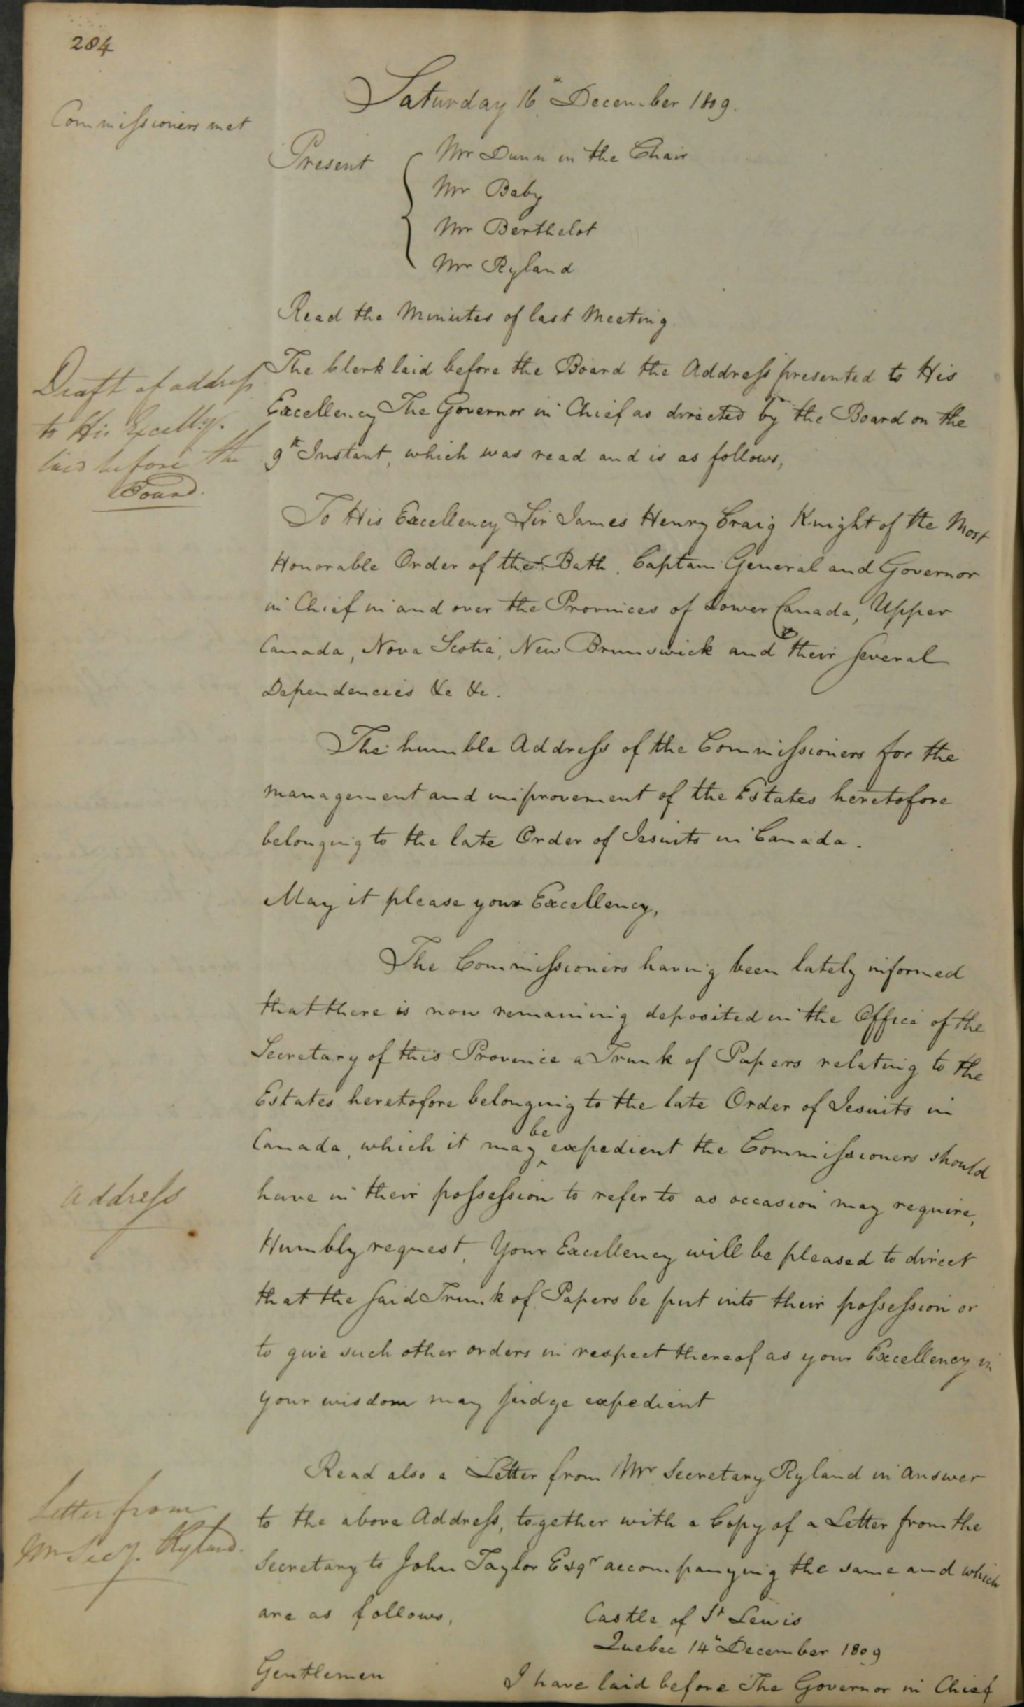 284
Saturday 16th December 1809.
Commissioners met
Present
Mr Dunn in the Chair
Mr Baby
Mr Berthelot
Mr Ryland
Read the Minutes of last Meeting
Draft of address
to His Excelly.
laid before the
Board.
The Clerk laid before the Board the Address presented to His
Excellency The Governor in Chief as directed by the Board on the
9th Instant, which was read and is as follows,
To His Excellency Sir James Henry Craig Knight of the Most
Honorable Order of the Bath, Captain General and Governor
in Chief in and over the Provinces of Lower Canada, Upper
Canada, Nova Scotia, New Brunswick and their several
Dependencies &c &c.
The humble Address of the Commissioners for the
management and improvement of the Estates heretofore
belonging to the late Order of Jesuits in Canada.
May it please your Excellency,
The Commissioners having been lately informed
that there is now remaining deposited in the Office of the
Secretary of this Province a Trunk of Papers relating to the
Estates heretofore belonging to the late Order of Jesuits in
Canada, which it may be expedient the Commissioners should
Address
have in their possession to refer to as occasion may require,
Humbly request, Your Excellency will be pleased to direct
that the said Trunk of Papers be put into their possession or
to give such other orders in respect thereof as your Excellency in
your wisdom may judge expedient
Letter from
Mr Secy. Ryland.
Read also a Letter from Mr Secretary Ryland in answer
to the above Address, together with a Copy of a Letter from the
Secretary to John Taylor Esqr accompanying the same and which
are as follows,
Castle of St Lewis
Quebec 14th December 1809
Gentlemen
I have laid before The Governor in Chief